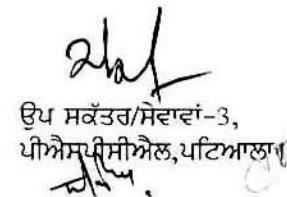 ਉਪ ਸਕੱਤਰ/ਸੇਵਾਵਾਂ-3,
ਪੀਐਸਪੀਸੀਐਲ,ਪਟਿਆਲਾ।